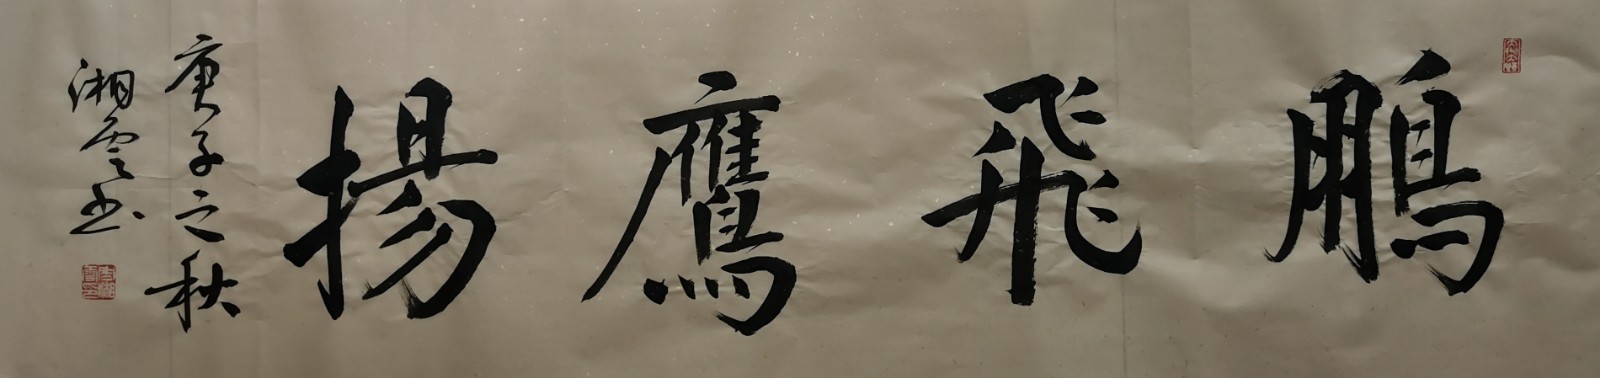 鵬飛鷹揚
庚子之秋
湘雲书